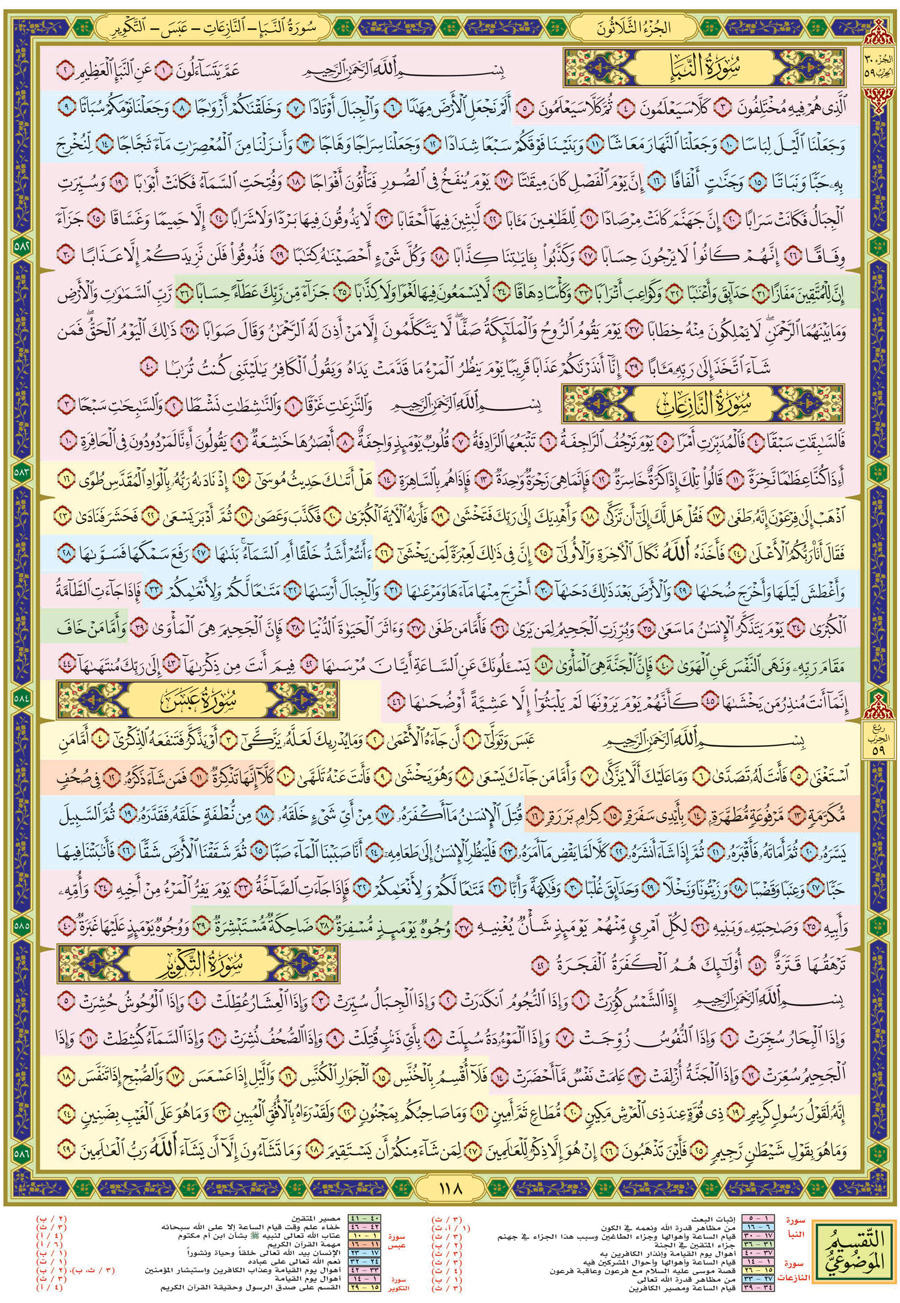 الجُزْءُ الثَّلَاثُونَ
سُورَةُ النَّبَإِ - النَّازِعَاتِ - عَبَسَ - التَّكْوِيرِ
الجزء ٣٠
الحزب ٥٩
سُورَةُ النَّبَإِ
بِسْمِ ٱللَّهِ ٱلرَّحْمَٰنِ ٱلرَّحِيمِ عَمَّ يَتَسَآءَلُونَ ١ عَنِ ٱلنَّبَإِ ٱلْعَظِيمِ ٢
ٱلَّذِى هُمْ فِيهِ مُخْتَلِفُونَ ٣ كَلَّا سَيَعْلَمُونَ ٤ ثُمَّ كَلَّا سَيَعْلَمُونَ ٥ أَلَمْ نَجْعَلِ ٱلْأَرْضَ مِهَٰدًا ٦ وَٱلْجِبَالَ أَوْتَادًا ٧ وَخَلَقْنَٰكُمْ أَزْوَٰجًا ٨ وَجَعَلْنَا نَوْمَكُمْ سُبَاتًا ٩
وَجَعَلْنَا ٱلَّيْلَ لِبَاسًا ١٠ وَجَعَلْنَا ٱلنَّهَارَ مَعَاشًا ١١ وَبَنَيْنَا فَوْقَكُمْ سَبْعًا شِدَادًا ١٢ وَجَعَلْنَا سِرَاجًا وَهَّاجًا ١٣ وَأَنزَلْنَا مِنَ ٱلْمُعْصِرَٰتِ مَآءً ثَجَّاجًا ١٤ لِّنُخْرِجَ
بِهِۦ حَبًّا وَنَبَاتًا ١٥ وَجَنَّٰتٍ أَلْفَافًا ١٦ إِنَّ يَوْمَ ٱلْفَصْلِ كَانَ مِيقَٰتًا ١٧ يَوْمَ يُنفَخُ فِى ٱلصُّورِ فَتَأْتُونَ أَفْوَاجًا ١٨ وَفُتِحَتِ ٱلسَّمَآءُ فَكَانَتْ أَبْوَٰبًا ١٩ وَسُيِّرَتِ
ٱلْجِبَالُ فَكَانَتْ سَرَابًا ٢٠ إِنَّ جَهَنَّمَ كَانَتْ مِرْصَادًا ٢١ لِّلطَّٰغِينَ مَـَٔابًا ٢٢ لَّٰبِثِينَ فِيهَآ أَحْقَابًا ٢٣ لَّا يَذُوقُونَ فِيهَا بَرْدًا وَلَا شَرَابًا ٢٤ إِلَّا حَمِيمًا وَغَسَّاقًا ٢٥ جَزَآءً
وِفَاقًا ٢٦ إِنَّهُمْ كَانُوا۟ لَا يَرْجُونَ حِسَابًا ٢٧ وَكَذَّبُوا۟ بِـَٔايَٰتِنَا كِذَّابًا ٢٨ وَكُلَّ شَىْءٍ أَحْصَيْنَٰهُ كِتَٰبًا ٢٩ فَذُوقُوا۟ فَلَن نَّزِيدَكُمْ إِلَّا عَذَابًا ٣٠
إِنَّ لِلْمُتَّقِينَ مَفَازًا ٣١ حَدَآئِقَ وَأَعْنَٰبًا ٣٢ وَكَوَاعِبَ أَتْرَابًا ٣٣ وَكَأْسًا دِهَاقًا ٣٤ لَّا يَسْمَعُونَ فِيهَا لَغْوًا وَلَا كِذَّٰبًا ٣٥ جَزَآءً مِّن رَّبِّكَ عَطَآءً حِسَابًا ٣٦ رَّبِّ ٱلسَّمَٰوَٰتِ وَٱلْأَرْضِ
وَمَا بَيْنَهُمَا ٱلرَّحْمَٰنِ ۖ لَا يَمْلِكُونَ مِنْهُ خِطَابًا ٣٧ يَوْمَ يَقُومُ ٱلرُّوحُ وَٱلْمَلَٰٓئِكَةُ صَفًّا ۖ لَّا يَتَكَلَّمُونَ إِلَّا مَنْ أَذِنَ لَهُ ٱلرَّحْمَٰنُ وَقَالَ صَوَابًا ٣٨ ذَٰلِكَ ٱلْيَوْمُ ٱلْحَقُّ ۖ فَمَن
شَآءَ ٱتَّخَذَ إِلَىٰ رَبِّهِۦ مَـَٔابًا ٣٩ إِنَّآ أَنذَرْنَٰكُمْ عَذَابًا قَرِيبًا يَوْمَ يَنظُرُ ٱلْمَرْءُ مَا قَدَّمَتْ يَدَاهُ وَيَقُولُ ٱلْكَافِرُ يَٰلَيْتَنِى كُنتُ تُرَٰبًۢا ٤٠
سُورَةُ النَّازِعَاتِ
بِسْمِ ٱللَّهِ ٱلرَّحْمَٰنِ ٱلرَّحِيمِ وَٱلنَّٰزِعَٰتِ غَرْقًا ١ وَٱلنَّٰشِطَٰتِ نَشْطًا ٢ وَٱلسَّٰبِحَٰتِ سَبْحًا ٣
فَٱلسَّٰبِقَٰتِ سَبْقًا ٤ فَٱلْمُدَبِّرَٰتِ أَمْرًا ٥ يَوْمَ تَرْجُفُ ٱلرَّاجِفَةُ ٦ تَتْبَعُهَا ٱلرَّادِفَةُ ٧ قُلُوبٌ يَوْمَئِذٍ وَاجِفَةٌ ٨ أَبْصَٰرُهَا خَٰشِعَةٌ ٩ يَقُولُونَ أَءِنَّا لَمَرْدُودُونَ فِى ٱلْحَافِرَةِ ١٠
أَءِذَا كُنَّا عِظَٰمًا نَّخِرَةً ١١ قَالُوا۟ تِلْكَ إِذًا كَرَّةٌ خَاسِرَةٌ ١٢ فَإِنَّمَا هِىَ زَجْرَةٌ وَٰحِدَةٌ ١٣ فَإِذَا هُم بِٱلسَّاهِرَةِ ١٤ هَلْ أَتَىٰكَ حَدِيثُ مُوسَىٰٓ ١٥ إِذْ نَادَىٰهُ رَبُّهُۥ بِٱلْوَادِ ٱلْمُقَدَّسِ طُوًى ١٦
ٱذْهَبْ إِلَىٰ فِرْعَوْنَ إِنَّهُۥ طَغَىٰ ١٧ فَقُلْ هَل لَّكَ إِلَىٰٓ أَن تَزَكَّىٰ ١٨ وَأَهْدِيَكَ إِلَىٰ رَبِّكَ فَتَخْشَىٰ ١٩ فَأَرَىٰهُ ٱلْـَٔايَةَ ٱلْكُبْرَىٰ ٢٠ فَكَذَّبَ وَعَصَىٰ ٢١ ثُمَّ أَدْبَرَ يَسْعَىٰ ٢٢ فَحَشَرَ فَنَادَىٰ ٢٣
فَقَالَ أَنَا۠ رَبُّكُمُ ٱلْأَعْلَىٰ ٢٤ فَأَخَذَهُ ٱللَّهُ نَكَالَ ٱلْـَٔاخِرَةِ وَٱلْأُولَىٰٓ ٢٥ إِنَّ فِى ذَٰلِكَ لَعِبْرَةً لِّمَن يَخْشَىٰٓ ٢٦ ءَأَنتُمْ أَشَدُّ خَلْقًا أَمِ ٱلسَّمَآءُ ۚ بَنَىٰهَا ٢٧ رَفَعَ سَمْكَهَا فَسَوَّىٰهَا ٢٨
وَأَغْطَشَ لَيْلَهَا وَأَخْرَجَ ضُحَىٰهَا ٢٩ وَٱلْأَرْضَ بَعْدَ ذَٰلِكَ دَحَىٰهَآ ٣٠ أَخْرَجَ مِنْهَا مَآءَهَا وَمَرْعَىٰهَا ٣١ وَٱلْجِبَالَ أَرْسَىٰهَا ٣٢ مَتَٰعًا لَّكُمْ وَلِأَنْعَٰمِكُمْ ٣٣ فَإِذَا جَآءَتِ ٱلطَّآمَّةُ
ٱلْكُبْرَىٰ ٣٤ يَوْمَ يَتَذَكَّرُ ٱلْإِنسَٰنُ مَا سَعَىٰ ٣٥ وَبُرِّزَتِ ٱلْجَحِيمُ لِمَن يَرَىٰ ٣٦ فَأَمَّا مَن طَغَىٰ ٣٧ وَءَاثَرَ ٱلْحَيَوٰةَ ٱلدُّنْيَا ٣٨ فَإِنَّ ٱلْجَحِيمَ هِىَ ٱلْمَأْوَىٰ ٣٩ وَأَمَّا مَنْ خَافَ
مَقَامَ رَبِّهِۦ وَنَهَى ٱلنَّفْسَ عَنِ ٱلْهَوَىٰ ٤٠ فَإِنَّ ٱلْجَنَّةَ هِىَ ٱلْمَأْوَىٰ ٤١ يَسْـَٔلُونَكَ عَنِ ٱلسَّاعَةِ أَيَّانَ مُرْسَىٰهَا ٤٢ فِيمَ أَنتَ مِن ذِكْرَىٰهَآ ٤٣ إِلَىٰ رَبِّكَ مُنتَهَىٰهَآ ٤٤
إِنَّمَآ أَنتَ مُنذِرُ مَن يَخْشَىٰهَا ٤٥ كَأَنَّهُمْ يَوْمَ يَرَوْنَهَا لَمْ يَلْبَثُوٓا۟ إِلَّا عَشِيَّةً أَوْ ضُحَىٰهَا ٤٦
سُورَةُ عَبَسَ
ربع
الحزب
٥٩
بِسْمِ ٱللَّهِ ٱلرَّحْمَٰنِ ٱلرَّحِيمِ عَبَسَ وَتَوَلَّىٰٓ ١ أَن جَآءَهُ ٱلْأَعْمَىٰ ٢ وَمَا يُدْرِيكَ لَعَلَّهُۥ يَزَّكَّىٰٓ ٣ أَوْ يَذَّكَّرُ فَتَنفَعَهُ ٱلذِّكْرَىٰٓ ٤ أَمَّا مَنِ
ٱسْتَغْنَىٰ ٥ فَأَنتَ لَهُۥ تَصَدَّىٰ ٦ وَمَا عَلَيْكَ أَلَّا يَزَّكَّىٰ ٧ وَأَمَّا مَن جَآءَكَ يَسْعَىٰ ٨ وَهُوَ يَخْشَىٰ ٩ فَأَنتَ عَنْهُ تَلَهَّىٰ ١٠ كَلَّآ إِنَّهَا تَذْكِرَةٌ ١١ فَمَن شَآءَ ذَكَرَهُۥ ١٢ فِى صُحُفٍ
مُّكَرَّمَةٍ ١٣ مَّرْفُوعَةٍ مُّطَهَّرَةٍۭ ١٤ بِأَيْدِى سَفَرَةٍ ١٥ كِرَامٍۭ بَرَرَةٍ ١٦ قُتِلَ ٱلْإِنسَٰنُ مَآ أَكْفَرَهُۥ ١٧ مِنْ أَىِّ شَىْءٍ خَلَقَهُۥ ١٨ مِن نُّطْفَةٍ خَلَقَهُۥ فَقَدَّرَهُۥ ١٩ ثُمَّ ٱلسَّبِيلَ
يَسَّرَهُۥ ٢٠ ثُمَّ أَمَاتَهُۥ فَأَقْبَرَهُۥ ٢١ ثُمَّ إِذَا شَآءَ أَنشَرَهُۥ ٢٢ كَلَّا لَمَّا يَقْضِ مَآ أَمَرَهُۥ ٢٣ فَلْيَنظُرِ ٱلْإِنسَٰنُ إِلَىٰ طَعَامِهِۦٓ ٢٤ أَنَّا صَبَبْنَا ٱلْمَآءَ صَبًّا ٢٥ ثُمَّ شَقَقْنَا ٱلْأَرْضَ شَقًّا ٢٦ فَأَنۢبَتْنَا فِيهَا
حَبًّا ٢٧ وَعِنَبًا وَقَضْبًا ٢٨ وَزَيْتُونًا وَنَخْلًا ٢٩ وَحَدَآئِقَ غُلْبًا ٣٠ وَفَٰكِهَةً وَأَبًّا ٣١ مَّتَٰعًا لَّكُمْ وَلِأَنْعَٰمِكُمْ ٣٢ فَإِذَا جَآءَتِ ٱلصَّآخَّةُ ٣٣ يَوْمَ يَفِرُّ ٱلْمَرْءُ مِنْ أَخِيهِ ٣٤ وَأُمِّهِۦ
وَأَبِيهِ ٣٥ وَصَٰحِبَتِهِۦ وَبَنِيهِ ٣٦ لِكُلِّ ٱمْرِئٍ مِّنْهُمْ يَوْمَئِذٍ شَأْنٌ يُغْنِيهِ ٣٧ وُجُوهٌ يَوْمَئِذٍ مُّسْفِرَةٌ ٣٨ ضَاحِكَةٌ مُّسْتَبْشِرَةٌ ٣٩ وَوُجُوهٌ يَوْمَئِذٍ عَلَيْهَا غَبَرَةٌ ٤٠
تَرْهَقُهَا قَتَرَةٌ ٤١ أُو۟لَٰٓئِكَ هُمُ ٱلْكَفَرَةُ ٱلْفَجَرَةُ ٤٢
سُورَةُ التَّكْوِيرِ
بِسْمِ ٱللَّهِ ٱلرَّحْمَٰنِ ٱلرَّحِيمِ إِذَا ٱلشَّمْسُ كُوِّرَتْ ١ وَإِذَا ٱلنُّجُومُ ٱنكَدَرَتْ ٢ وَإِذَا ٱلْجِبَالُ سُيِّرَتْ ٣ وَإِذَا ٱلْعِشَارُ عُطِّلَتْ ٤ وَإِذَا ٱلْوُحُوشُ حُشِرَتْ ٥
وَإِذَا ٱلْبِحَارُ سُجِّرَتْ ٦ وَإِذَا ٱلنُّفُوسُ زُوِّجَتْ ٧ وَإِذَا ٱلْمَوْءُۥدَةُ سُئِلَتْ ٨ بِأَىِّ ذَنۢبٍ قُتِلَتْ ٩ وَإِذَا ٱلصُّحُفُ نُشِرَتْ ١٠ وَإِذَا ٱلسَّمَآءُ كُشِطَتْ ١١ وَإِذَا
ٱلْجَحِيمُ سُعِّرَتْ ١٢ وَإِذَا ٱلْجَنَّةُ أُزْلِفَتْ ١٣ عَلِمَتْ نَفْسٌ مَّآ أَحْضَرَتْ ١٤ فَلَآ أُقْسِمُ بِٱلْخُنَّسِ ١٥ ٱلْجَوَارِ ٱلْكُنَّسِ ١٦ وَٱلَّيْلِ إِذَا عَسْعَسَ ١٧ وَٱلصُّبْحِ إِذَا تَنَفَّسَ ١٨
إِنَّهُۥ لَقَوْلُ رَسُولٍ كَرِيمٍ ١٩ ذِى قُوَّةٍ عِندَ ذِى ٱلْعَرْشِ مَكِينٍ ٢٠ مُّطَاعٍ ثَمَّ أَمِينٍ ٢١ وَمَا صَاحِبُكُم بِمَجْنُونٍ ٢٢ وَلَقَدْ رَءَاهُ بِٱلْأُفُقِ ٱلْمُبِينِ ٢٣ وَمَا هُوَ عَلَى ٱلْغَيْبِ بِضَنِينٍ ٢٤
وَمَا هُوَ بِقَوْلِ شَيْطَٰنٍ رَّجِيمٍ ٢٥ فَأَيْنَ تَذْهَبُونَ ٢٦ إِنْ هُوَ إِلَّا ذِكْرٌ لِّلْعَٰلَمِينَ ٢٧ لِمَن شَآءَ مِنكُمْ أَن يَسْتَقِيمَ ٢٨ وَمَا تَشَآءُونَ إِلَّآ أَن يَشَآءَ ٱللَّهُ رَبُّ ٱلْعَٰلَمِينَ ٢٩
٥٨٢
٥٨٣
٥٨٤
٥٨٥
٥٨٦
١١٨
التَّقْسِيمُ
المَوْضُوعِيُّ
سورة النبأ
١ - ٥ إثبات البعث (٣ / ث)
٦ - ١٦ من مظاهر قدرة الله ونعمه في الكون
١٧ - ٣٠ قيام الساعة وأهوالها وجزاء الطاغين وسبب هذا الجزاء في جهنم (٣ / ث)
٣١ - ٣٦ جزاء المتقين في الجنة
٣٧ - ٤٠ أهوال يوم القيامة وإنذار الكافرين به
سورة النازعات
١ - ١٤ قيام الساعة وأهوالها وأحوال المشركين فيه
١٥ - ٢٦ قصة موسى عليه السلام مع فرعون وعاقبة فرعون
٢٧ - ٣٣ من مظاهر قدرة الله تعالى
٣٤ - ٣٩ قيام الساعة ومصير الكافرين
٤٠ - ٤١ مصير المتقين
٤٢ - ٤٦ خفاء علم وقت قيام الساعة إلا على الله سبحانه
سورة عبس
١ - ١٠ عتاب الله تعالى لنبيه ﷺ بشأن ابن أم مكتوم
١١ - ١٦ مهمة القرآن الكريم
١٧ - ٢٣ الإنسان بيد الله تعالى خلقاً وحياة ونشوراً
٢٤ - ٣٢ نعم الله تعالى على عباده
٣٣ - ٤٢ أهوال يوم القيامة وعذاب الكافرين واستبشار المؤمنين
سورة التكوير
١ - ١٤ أهوال يوم القيامة
١٥ - ٢٩ القسم على صدق الرسول وحقيقة القرآن الكريم